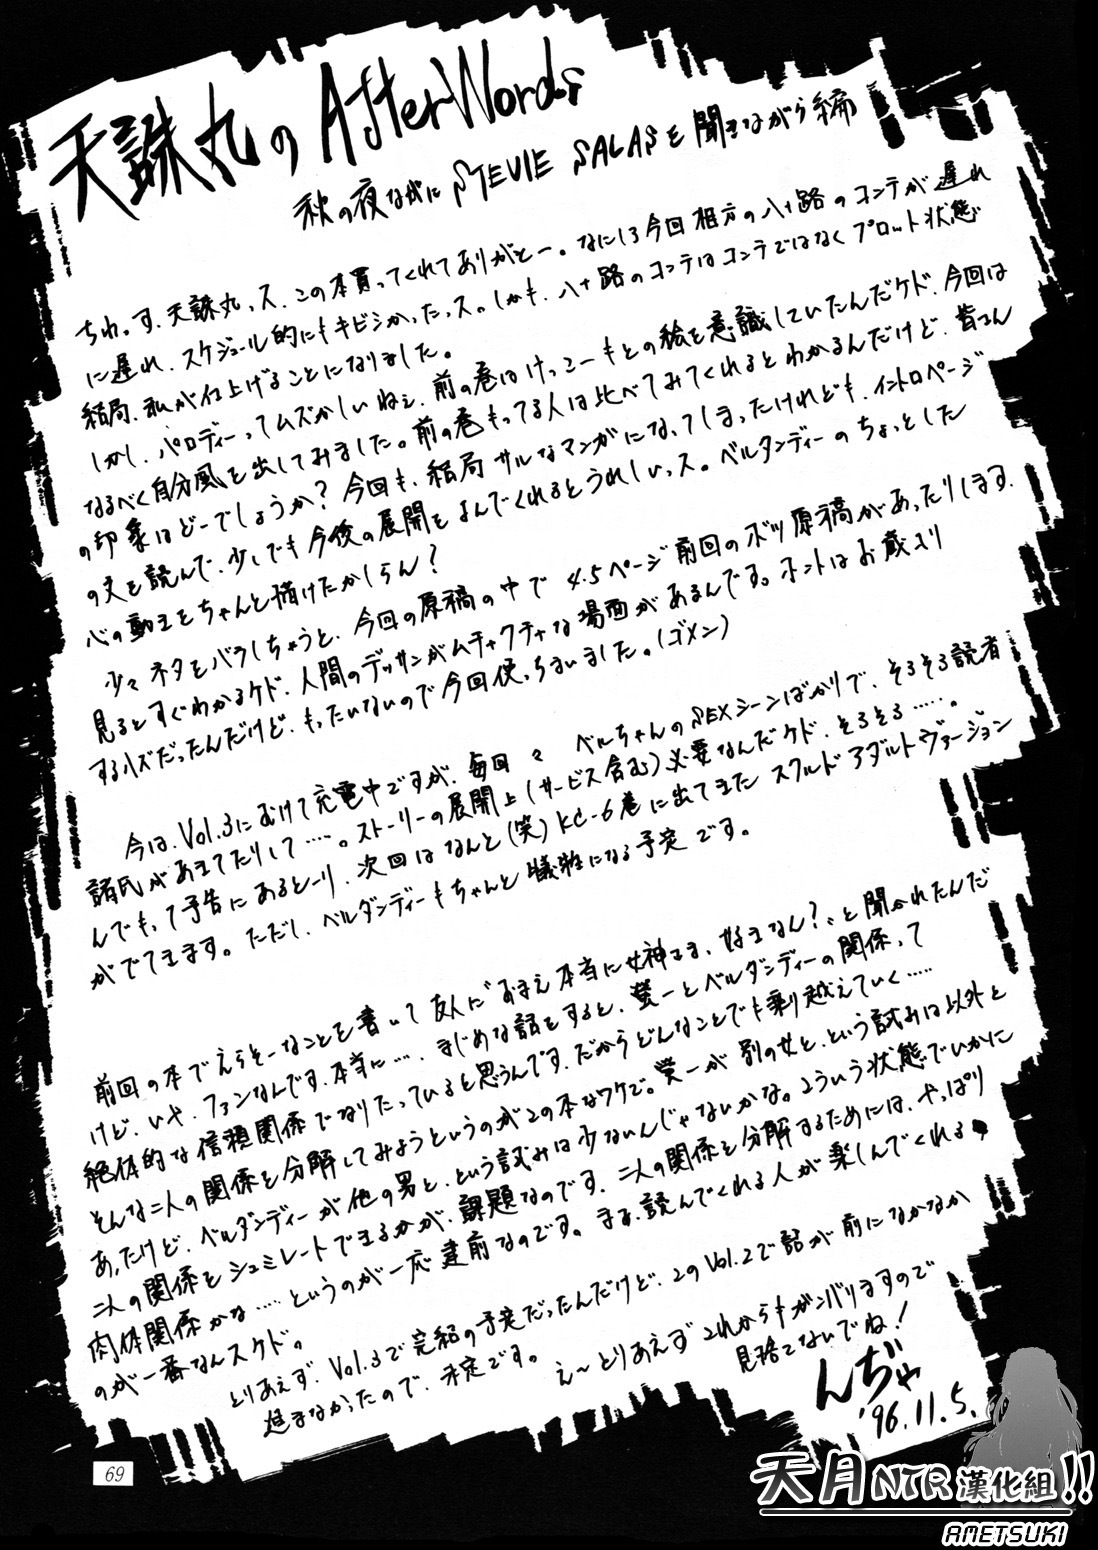 天誅丸の AfterWords
秋の夜ながに STEVIE SALASを聞きながら編
ちわっす、天誅丸っス、この本買ってくれてありがとー。なにしろ今回相方の八十路のコンテが遅れ
に遅れ、スケジュール的にもキビシかったっス。しかも、八十路のコンテはコンテではなくプロット状態
結局、私が仕上げることになりました。
しかし、パロディーってムズかしいねぇ、前の巻はけっこーもとの絵を意識していたんだケド、今回は
なるべく自分風を出してみました。前の巻もってる人は比べてみてくれるとわかるんだけど、皆さん
の印象はどーでしょうか? 今回も、結局サルなマンガになってしまったけれども、イントロページ
の文を読んで、少しでも今後の展開をよんでくれるとうれしいっス。ベルダンディーのちょっとした
心の動きをちゃんと描けたかしらん?
少々ネタをバラしちゃうと、今回の原稿の中で 4.5ページ前回のボツ原稿があったりします。
見るとすぐわかるケド、人間のデッサンがムチャクチャな場面があるんです。ホントはお蔵入り
するハズだったんだけど、もったいないので今回使っちまいました。(ゴメン)
今は、Vol.3にむけて充電中ですが、毎回々 ベルちゃんのSEXシーンばかりで、そろそろ読者
諸氏があきてたりして……。ストーリーの展開上(サービス含む)必要なんだケド、そろそろ……。
んでもって予告にあるとーり、次回はなんと(笑)KC-6巻に出てきた スクルド アダルトヴァージョン
がでてきます。ただし、ベルダンディーもちゃんと犠牲になる予定です。
前回の本でえらそーなことを書いて友人に“おまえ本当に女神さま、好きなん?”と聞かれたんだ
けど、いや、ファンなんです、本当に…、まじめな話をすると、螢一とベルダンディーの関係って
絶体的な信頼関係でなりたっていると思うんです、だからどんなことでも乗り越えていく……
そんな二人の関係を分解してみようというのがこの本なワケで。螢一が別の女と、という試みは以外と
あったけど、ベルダンディーが他の男と、という試みは少ないんじゃないかな。こういう状態でいかに
二人の関係をシュミレートできるかが、課題なのです、二人の関係を分解するためには、やっぱり
肉体関係かな……というのが一応建前なのです。まぁ、読んでくれる人が楽しんでくれる
のが一番なんスケド。
とりあえず、Vol.3で完結の予定だったんだけど、このVol.2で話が前になかなか
進まなかったので、未定です。 え〜とりあえずこれからもガンバリますので
見捨てないでね!
んぢゃ
'96.11.5.
69
天月NTR漢化組!!
AMETSUKI